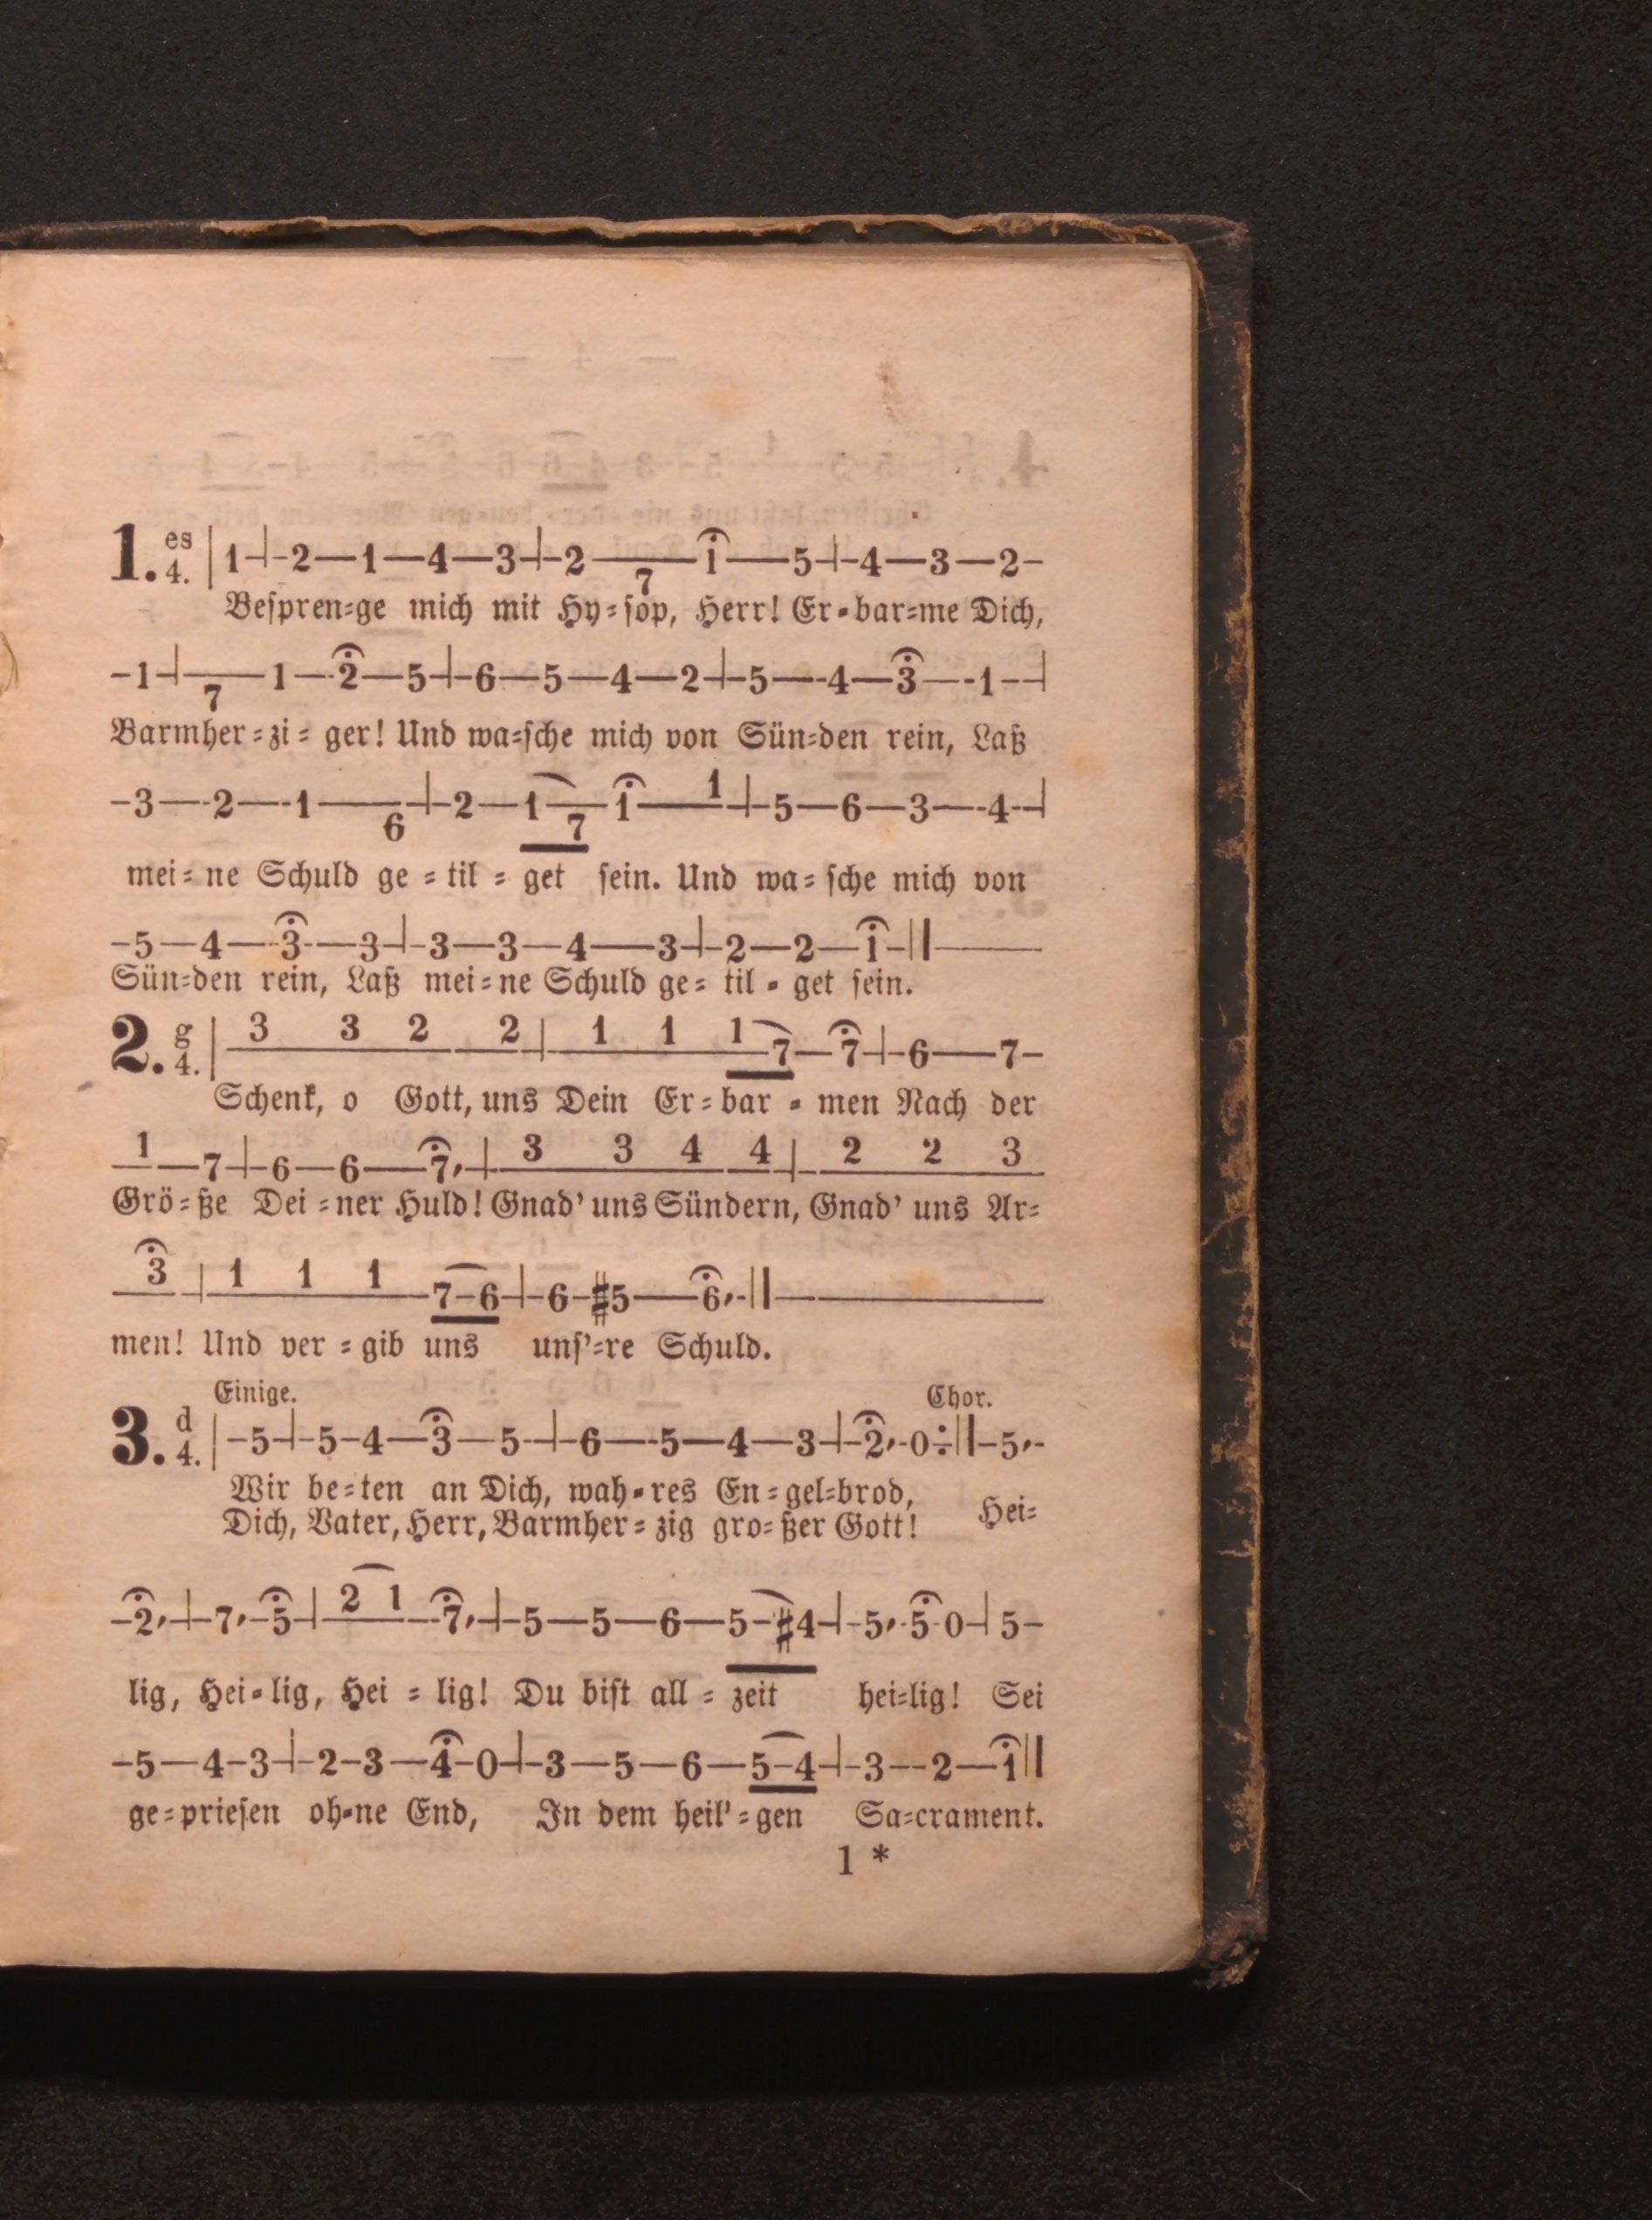 1. es 4. |1-|-2—1—4—3-|-2—7—1—5-|-4—3—2-
Beſpren⸗ge mich mit Hy⸗ſop, Herr! Er⸗bar⸗me Dich,
-1-|—7—1—2—5-|-6—5—4—2-|-5—4—3—1-|
Barmher⸗zi⸗ger! Und wa⸗ſche mich von Sün⸗den rein, Laß
-3—2—1—6-|-2—1—7—1—1-|-5—6—3—4-|
mei⸗ne Schuld ge⸗til⸗get ſein. Und wa⸗ſche mich von
-5—4—3—3-|-3—3—4—3-|-2—2—1-||
Sün⸗den rein, Laß mei⸗ne Schuld ge⸗til⸗get ſein.
2. g 4. | 3 3 2 2 | 1 1 1 7—7-|-6—7-
Schenk, o Gott, uns Dein Er⸗bar⸗men Nach der
1—7-|-6—6—7,-| 3 3 4 4 | 2 2 3
Grö⸗ße Dei⸗ner Huld! Gnad’ uns Sündern, Gnad’ uns Ar⸗
3 | 1 1 1 7-6-|-6-♯5—6,-||
men! Und ver⸗gib uns unſ’⸗re Schuld.
Einige. Chor.
3. d 4. |-5-|-5-4—3—5-|-6—5—4—3-|-2,-0÷||-5,-
Wir be⸗ten an Dich, wah⸗res En⸗gel⸗brod,
Dich, Vater, Herr, Barmher⸗zig gro⸗ßer Gott! Hei⸗
-2,-|-7,-5-| 2 1 -7,-|-5—5—6—5-♯4-|-5,-5-0-|5-
lig, Hei⸗lig, Hei⸗lig! Du biſt all⸗zeit hei⸗lig! Sei
-5—4-3-|-2-3—4-0-|-3—5—6—5-4-|-3--2—1||
ge⸗prieſen oh⸗ne End, In dem heil’⸗gen Sa⸗crament.
1 *